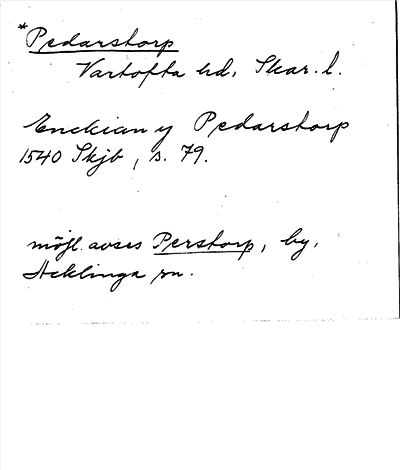 *Pedarstorp
Vartofta hd, Skar. l.
Enckian y Pedarstorp
1540 Skjb, s. 79.
möjl. avses Perstorp, by,
Acklinga sn.